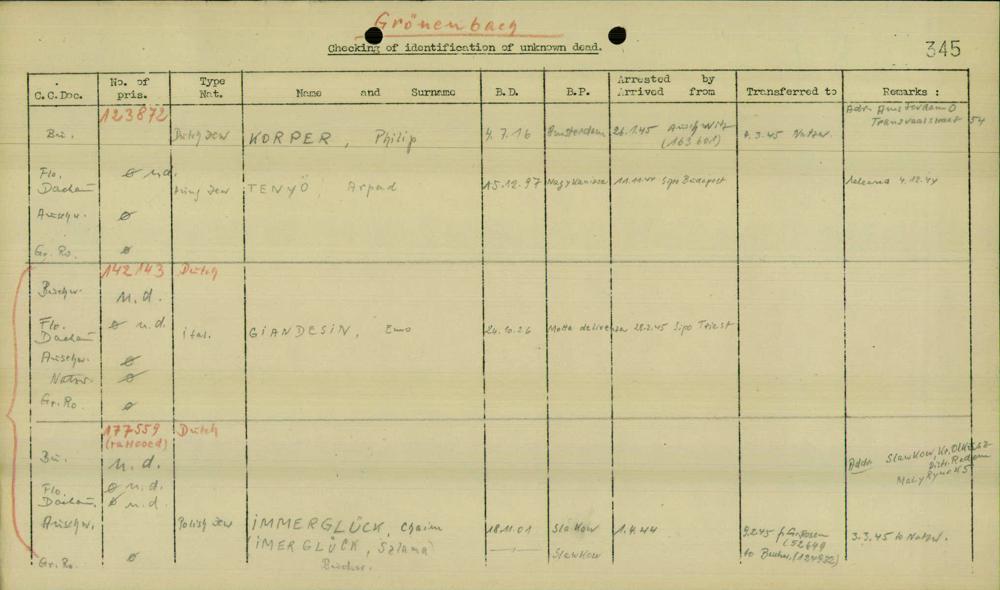 Grönenbach
Checking of identification of unknown dead.
345
C.C.Doc. No. of pris. Type Nat. Name and Surname B.D. B.P. Arrested by Arrived from Transferred to Remarks :
123872
Adr. Amsterdam O
Transvaalstraat 54
Bu. Dutch Jew KORPER, Philip 4.7.16 Amsterdam 26.1.45 Auschwitz (163601) 3.45 Natzw.
Flo. ø n.d.
Dachau Hung Jew TENYÖ, Arpad 15.12.97 Nagykanizsa 11.11.44 Sipo Budapest released 4.12.44
Auschw. ø
Gr. Ro. ø
142143 Dutch
Buchw. n.d.
Flo. ø n.d.
Dachau ital. GIANDESIN, Eno 26.10.26 Motta de livenza 28.2.45 Sipo Triest
Auschw. ø
Natzw. ø
Gr. Ro. ø
177559 Dutch
(tattooed)
Bu. n.d.
Addr. Slawkow, Kr. Olkusz
Distr. Radom
Maly Rynek 5
Flo. ø n.d.
Dachau ø n.d.
Auschw. Polish Jew IMMERGLÜCK, Chaim 18.11.01 Slakow 1.4.44 9.2.45 f. Gr. Rosen (52649 3.3.45 to Natzw.
(IMERGLÜCK, Szlama) —— Slawkow to Buchw. (124932)
Buchw.
Gr. Ro. ø